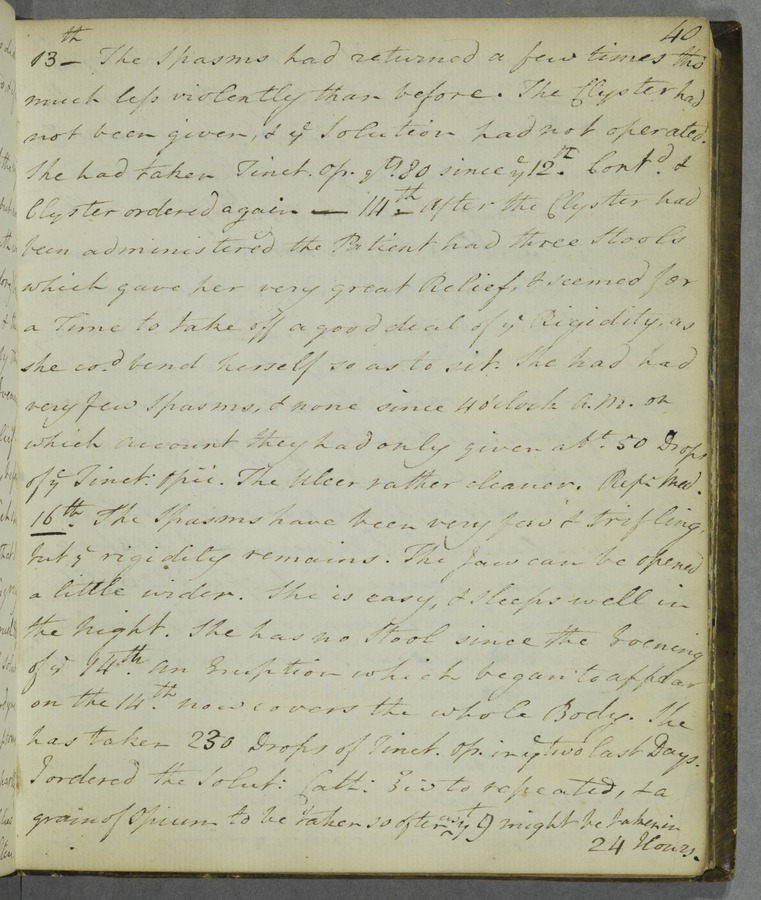 40
13th The Spasms had returned a few times tho
much less violently than before. The Clyster had
not been given, & ye Solution had not operated.
She had taken Tinct. Op. gtts. 80 since ye 12th. Cont'd. &
Clyster ordered again — 14th After the Clyster had
been administered the Patient had three Stools
which gave her very great Relief, & seemed for
a Time to take off a good deal of ye Rigidity, as
she co'd bend herself so as to sit. She had had
very few Spasms, & none since 4 o'clock A.M. on
which account they had only given abt. 50 Drops
of ye Tinct: Opii. The Ulcer rather cleaner. Rep: Med.
16th. The Spasms have been very few & trifling,
but ye rigidity remains. The Jaws can be opened
a little wider. She is easy, & sleeps well in
the Night. She has no Stool since the Evening
of ye 14th. An Eruption which began to appear
on the 14th now covers the whole Body. She
has taken 230 Drops of Tinct. Op. in ye two last Days.
I ordered the Solut: Cath: ℥iv to repeated, & a
grain of Opium to be taken so often as yt might be taken in
24 Hours.